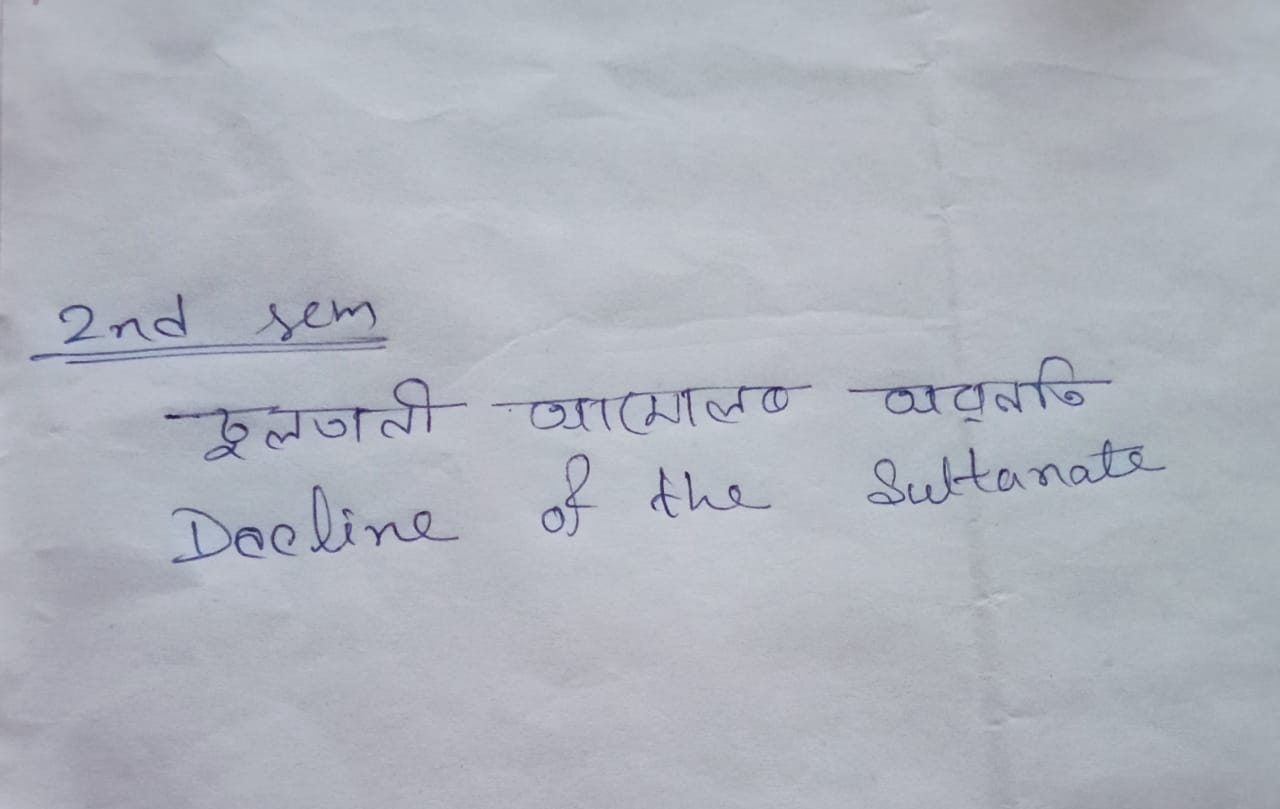 2nd sem
চুলতানী আমোলৰ অবনতি
Decline of the Sultanate